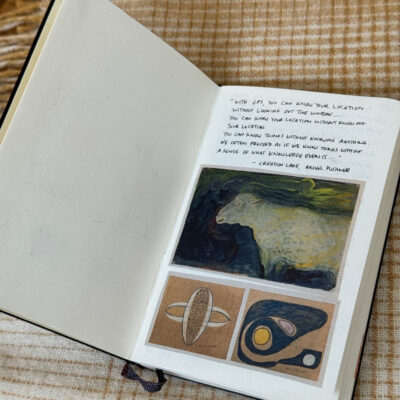 "WITH GPS, YOU CAN KNOW YOUR LOCATION
WITHOUT LOOKING OUT THE WINDOW...
YOU CAN KNOW YOUR LOCATION WITHOUT KNOWING
YOUR LOCATION.
YOU CAN KNOW THINGS WITHOUT KNOWING ANYTHING.
WE OFTEN PROCEED AS IF WE KNOW THINGS WITHOUT
A SENSE OF WHAT KNOWLEDGE EVEN IS..."
- CREATION LAKE, RACHEL KUSHNER